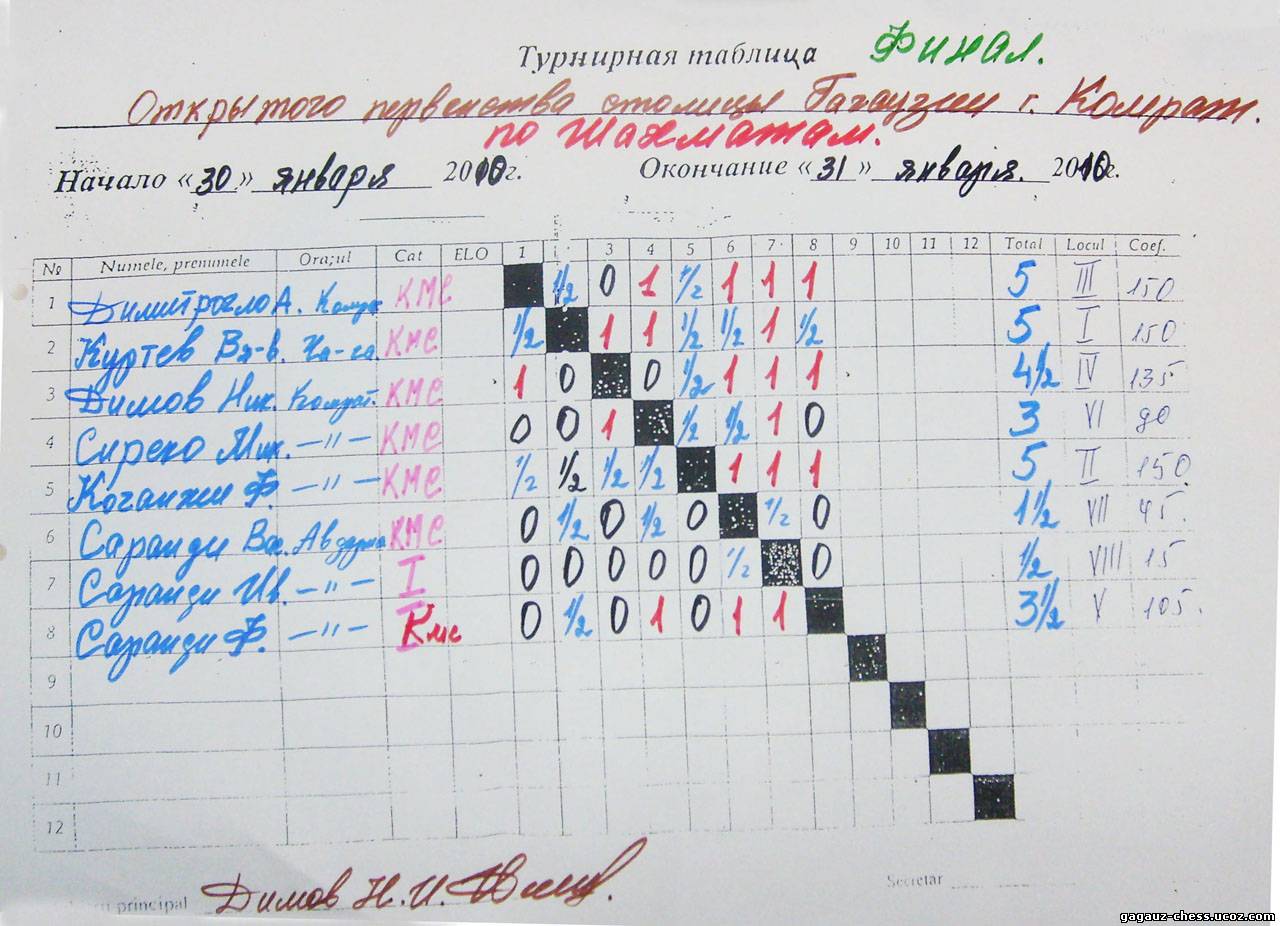 Турнирная таблица Финал.
Открытого первенства столицы Гагаузии г. Комрат.
по шахматам.
Начало «30» января 2010г. Окончание «31» января. 2010г.
№ Numele, prenumele Oraşul Cat ELO 1 3 4 5 6 7 8 9 10 11 12 Total Locul Coef.
1 Димитрогло А. Комрат КМС 1/2 0 1 1/2 1 1 1 5 III 150
2 Куртев Вя-в. КМС 1/2 1 1 1/2 1/2 1 1/2 5 I 150
3 Димов Ник. Комрат. КМС 1 0 0 1/2 1 1 1 4 1/2 IV 135
4 Мих. —"— КМС 0 0 1 1/2 1/2 1 0 3 VI 90
5 Ф. —"— КМС 1/2 1/2 1/2 1/2 1 1 1 5 II 150
6 Саранди КМС 0 1/2 0 1/2 0 1/2 0 1 1/2 VII 45.
7 Саранди Ив. —"— I 0 0 0 0 0 1/2 0 1/2 VIII 15
8 Саранди Ф. —"— Кмс 0 1/2 0 1 0 1 1 3 1/2 V 105.
9
10
11
12
principal Димов Н. И. Secretar
gagauz-chess.ucoz.com